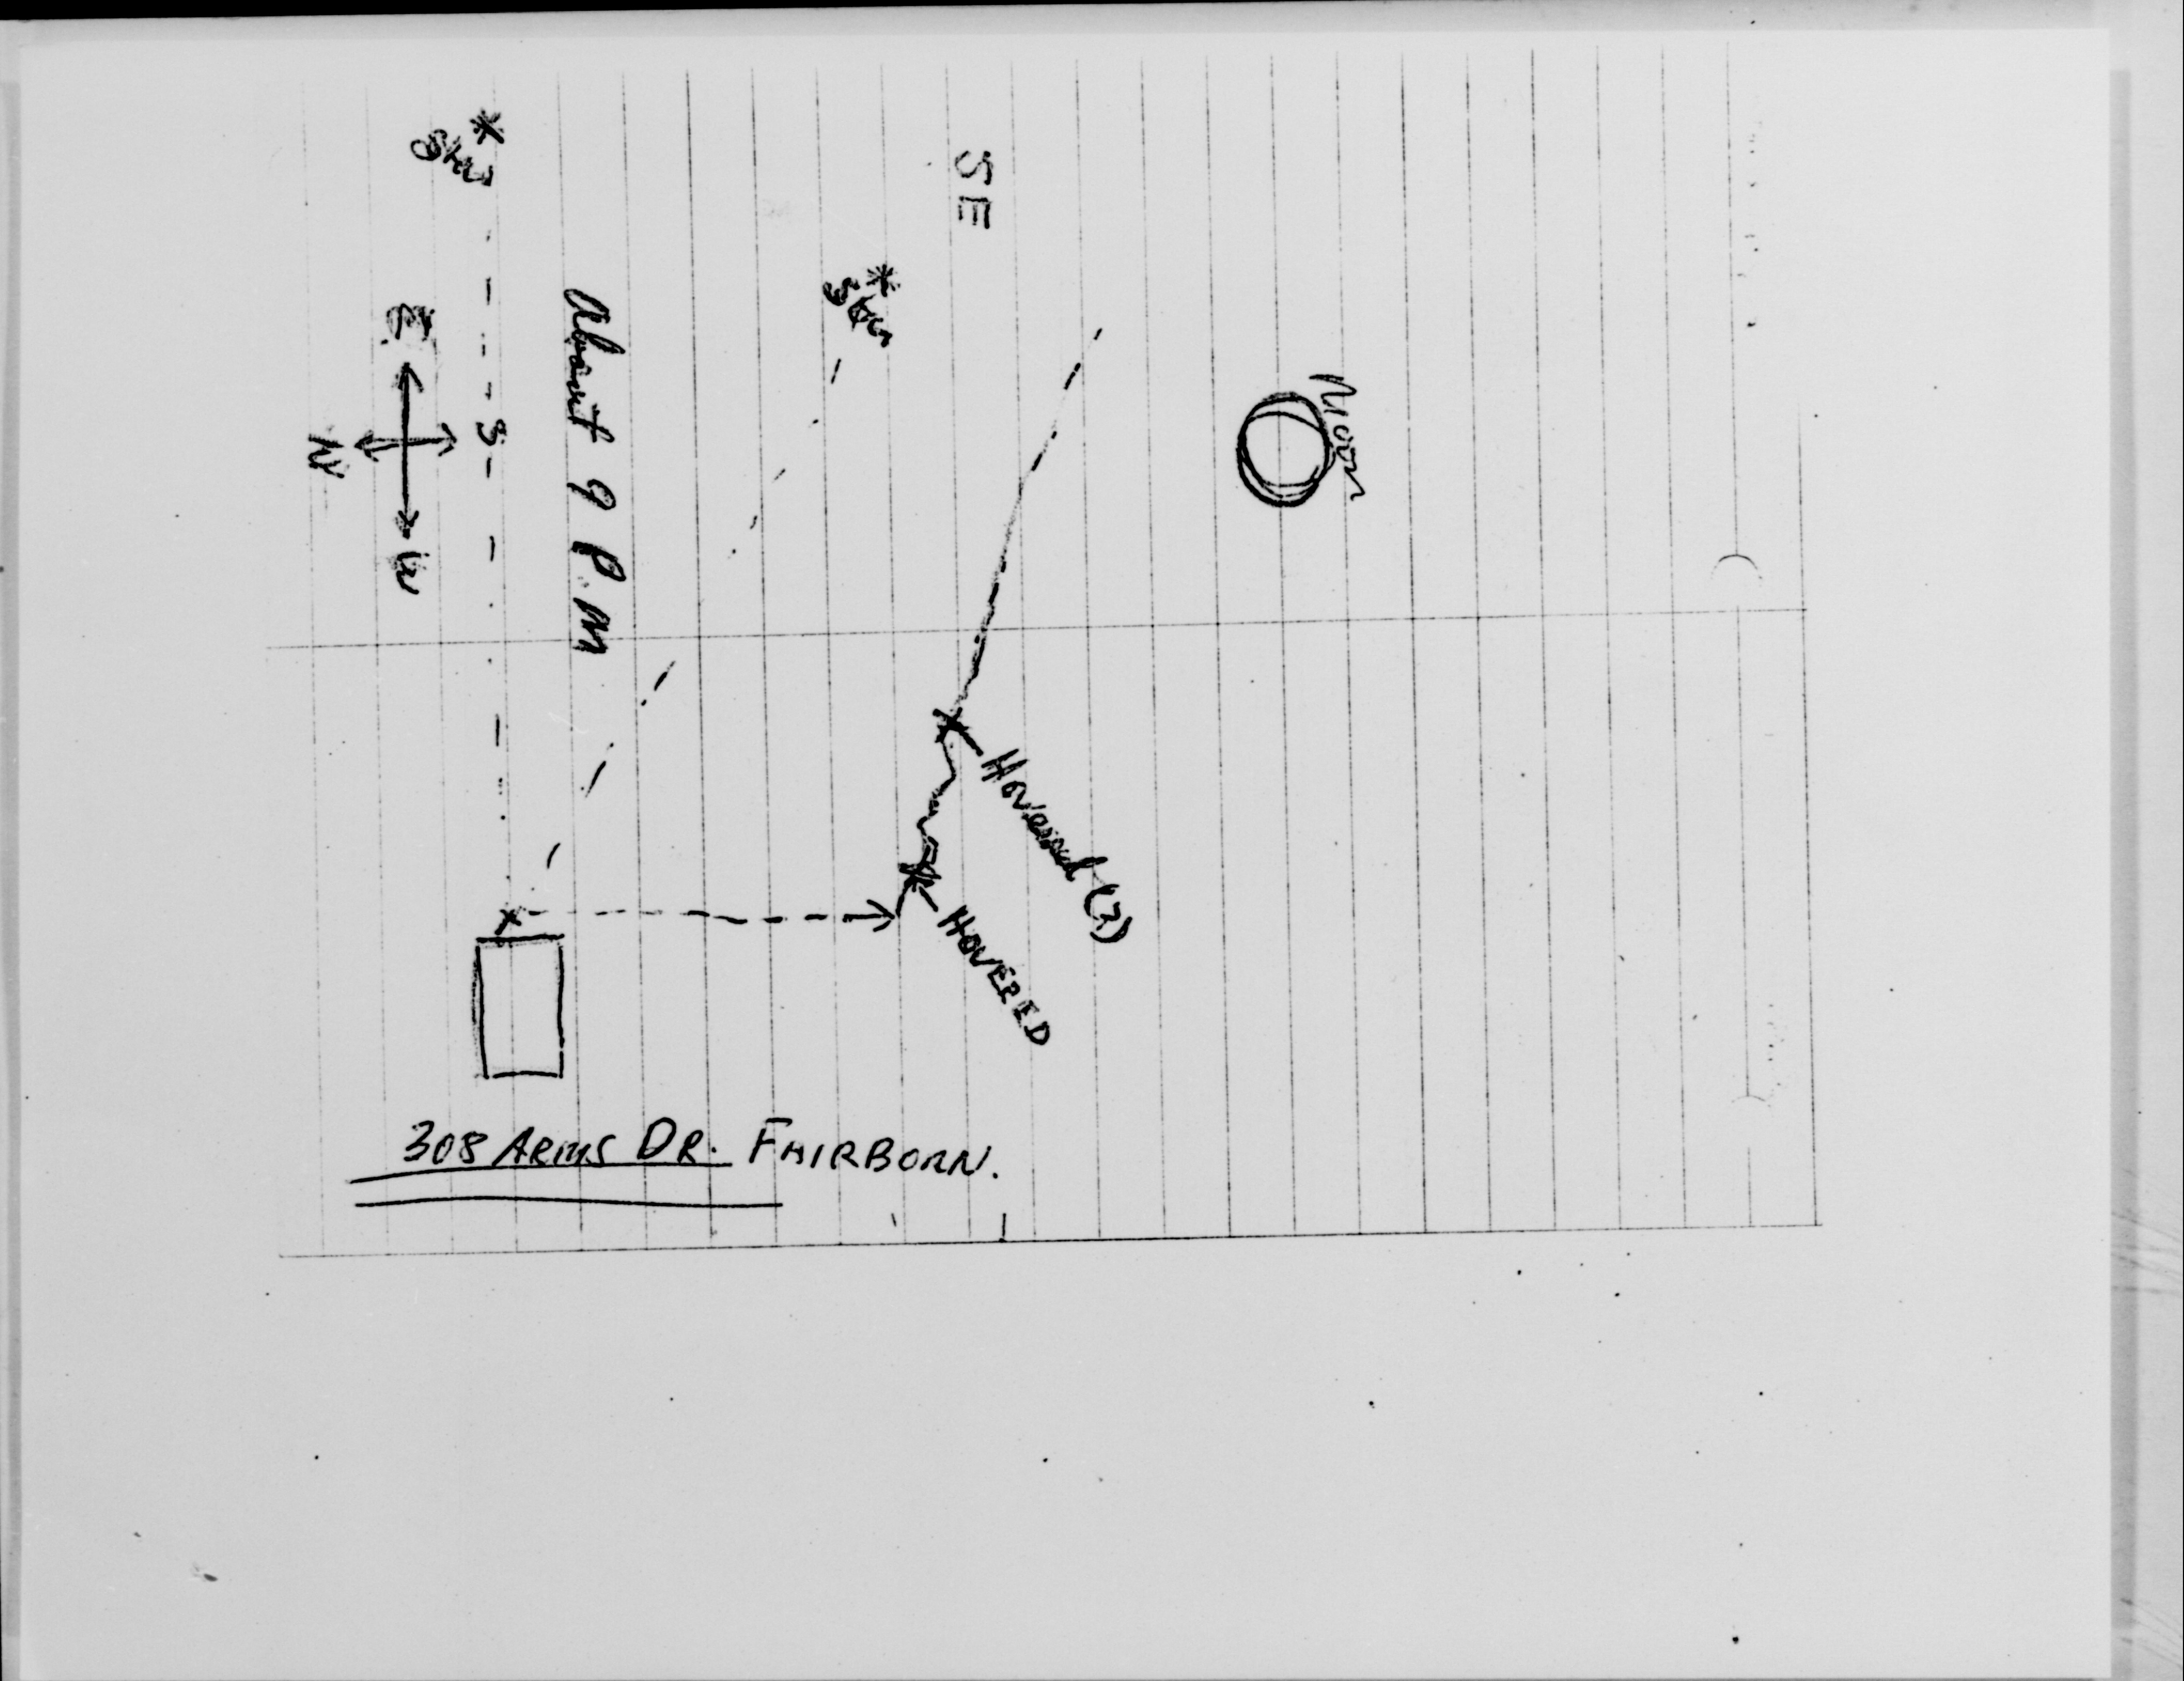 * Star
SE
* Star
E
N
S
W
About 9 P.M
Moon
Hovered (2)
HOVERED
308 ARMS DR. FAIRBORN.